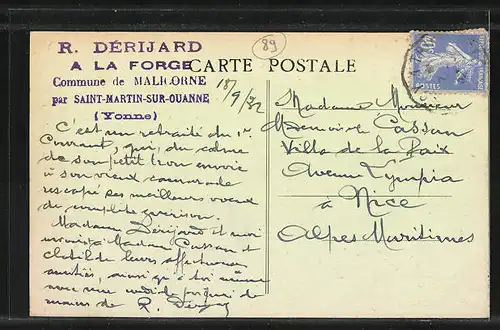 R. DÉRIJARD
A LA FORGE
Commune de MALICORNE
par SAINT-MARTIN-SUR-OUANNE
(Yonne)
89
CARTE POSTALE
18/9/32
POSTES
C'est un retraité du 1er
Courant, qui, du calme
de son petit trou envoie
à son vieux camarade
rescapé ses meilleurs vœux
de complète guérison.
Madame Dérijard et moi
à Madame Cassan et
Clotilde leurs affectueuses
amitiés, aussi qu'à toi même
avec une poignée de
mains de R. Dérijard
Madame Monsieur
Cassan
Villa de la Paix
Avenue Olympia
à Nice
Alpes Maritimes